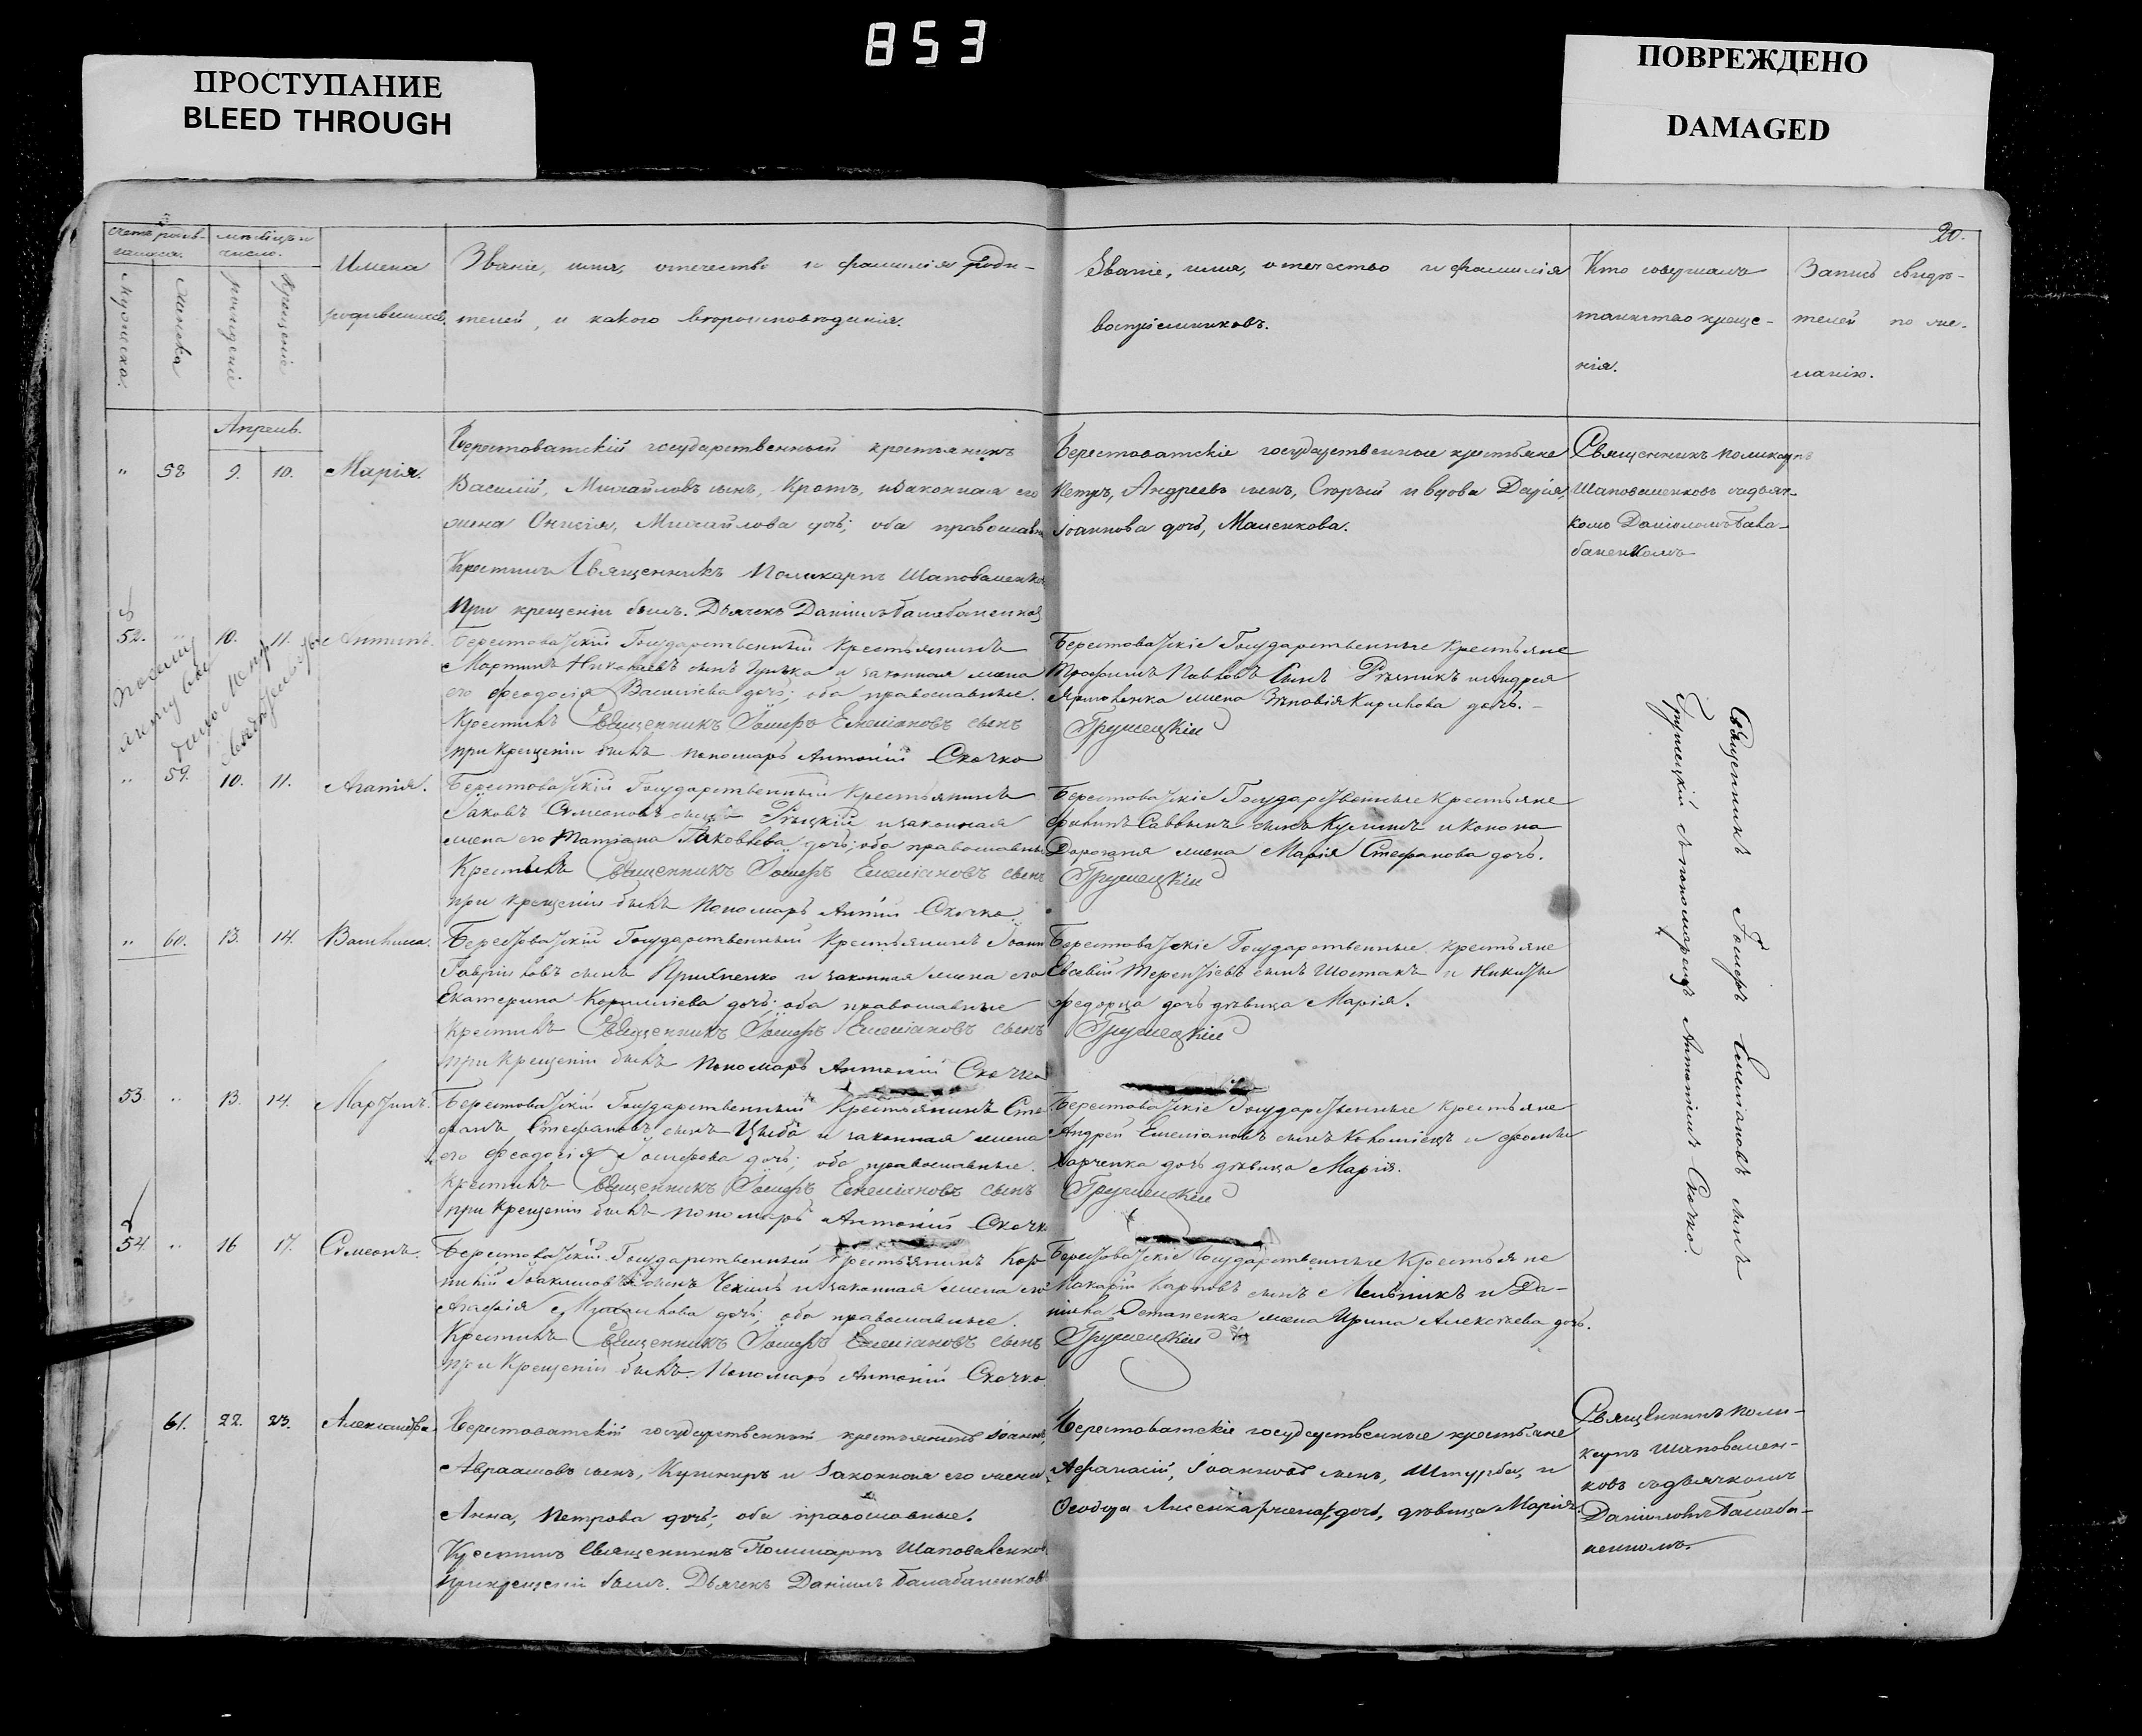 853
ПРОСТУПАНИЕ
BLEED THROUGH
ПОВРЕЖДЕНО
DAMAGED
20.
Счетъ
мѣсяцъ и
число.
Имена
Званіе, имя, отечество и фамилія роди-
телей, и какого вѣроисповѣданія.
Званіе, имя, отечество и фамилія
воспріемниковъ.
Кто совершалъ
таинство креще-
нія.
Запись свидѣ-
телей по же-
ланію.
Мужеска.
Женска
рожденіе
Крещеніе
Апрель.
" 58 9. 10. Марія.
Берестоватскій государственный крестьянинъ
Василій, Михайловъ сынъ, Кротъ, и законная его
жена Онисія, Михайлова дочь; оба православн
Крестилъ Священникъ Поликарпъ Шаповаленко
При крещеніи былъ. Дьячекъ Даніилъ Балабаненков
Берестоватскіе государственные крестьяне
Петръ, Андреевъ сынъ, Скорый и вдова Дарія,
Іоаннова дочь, Маленкова.
Священникъ Поликарпъ
Шаповаленковъ съ дьяч-
комъ Даніиломъ Бала-
баненкомъ
52. " 10. 11. Антипъ.
Берестоватскій Государственный Крестьянинъ
Мартинъ Николаевъ сынъ и законная жена
его Феодосія Василіева дочь; оба православные.
Крестилъ Священникъ Іосифъ Емеліановъ сынъ
при Крещеніи былъ пономарь Антоній Скочко
Берестоватскіе Государственные Крестьяне
Трофимъ Павловъ Сынъ Рѣзникъ и Андрея
Ярмоленка жена Зѣновія Кирилова дочь.
Грушецкій
" 59. 10. 11. Агапія.
Берестоватскій Государственный Крестьянинъ
Іаковъ Сѵмеоновъ сынъ и законная
жена его Татіана Іаковлева дочь; оба православные
Крестилъ Священникъ Іосифъ Емеліановъ сынъ
при крещеніи былъ Пономарь Антоній Скочко.
Берестоватскіе Государственные Крестьяне
Филипъ Саввинъ сынъ и Конона
жена Марія Стефанова дочь.
Грушецкій
" 60. 13. 14. Василиса.
Берестоватскій Государственный Крестьянинъ Іоанн
Гавріиловъ сынъ и законная жена его
Екатерина Корниліева дочь; оба православные
Крестилъ Священникъ Іосифъ Емеліановъ сынъ
при Крещеніи былъ Пономарь Антоній Скочко
Берестоватскіе Государственные крестьяне
Евсевій Терентіевъ сынъ Шостакъ и Никиты
дочь дѣвица Марія.
Грушецкій
53. " 13. 14. Мартинъ.
Берестоватскій Государственный Крестьянинъ Сте-
фанъ Стефановъ сынъ Цыба и законная жена
его Феодосія Іосифова дочь; оба православные.
Крестилъ Священникъ Іосифъ Емеліановъ сынъ
при Крещеніи былъ пономарь Антоній Скочко
Берестоватскіе Государственные Крестьяне
Андрей Емеліановъ сынъ Коломіецъ и Фомы
Харченка дочь дѣвица Марія.
Грушецкій
54 " 16 17. Сѵмеонъ.
Берестоватскій Государственный Крестьянинъ Кор-
нилій Іоакимовъ сынъ и законная жена его
Агафія Михаилова дочь; оба православные.
Крестилъ Священникъ Іосифъ Емеліановъ сынъ
при Крещеніи былъ Пономарь Антоній Скочко
Берестоватскіе Государственные Крестьяне
Макарій Карповъ сынъ Мельникъ и Да-
ніила Остапенка жена Ирина Алексѣева дочь.
Грушецкій
Священникъ Іосифъ Емеліановъ сынъ
Грушецкій съ пономаремъ Антоніемъ Скочко.
61. 22. 23. Александра.
Берестоватскій государственный крестьянинъ Іоаннъ,
Авраамовъ сынъ, Кушниръ и законная его жена
Анна, Петрова дочь; оба православные.
Крестилъ Священникъ Поликарпъ Шаповаленков
При крещеніи былъ. Дьячекъ Даніилъ Балабаненковъ
Берестоватскіе государственные крестьяне
Афанасій, Іоанновъ сынъ, Штурба, и
дочь, дѣвица Марія.
Священникъ Поли-
карпъ Шаповален-
ковъ съ дьячкомъ
Даніиломъ Балаба-
ненкомъ.